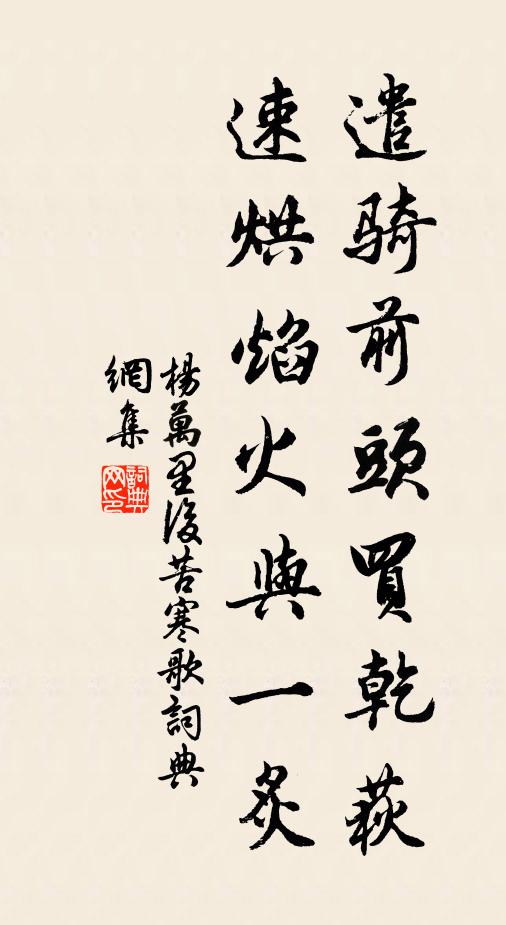 遣騎前頭買乾荻
速烘焰火與一炙
楊萬里後苦寒歌詞典
網集
詞典
网印